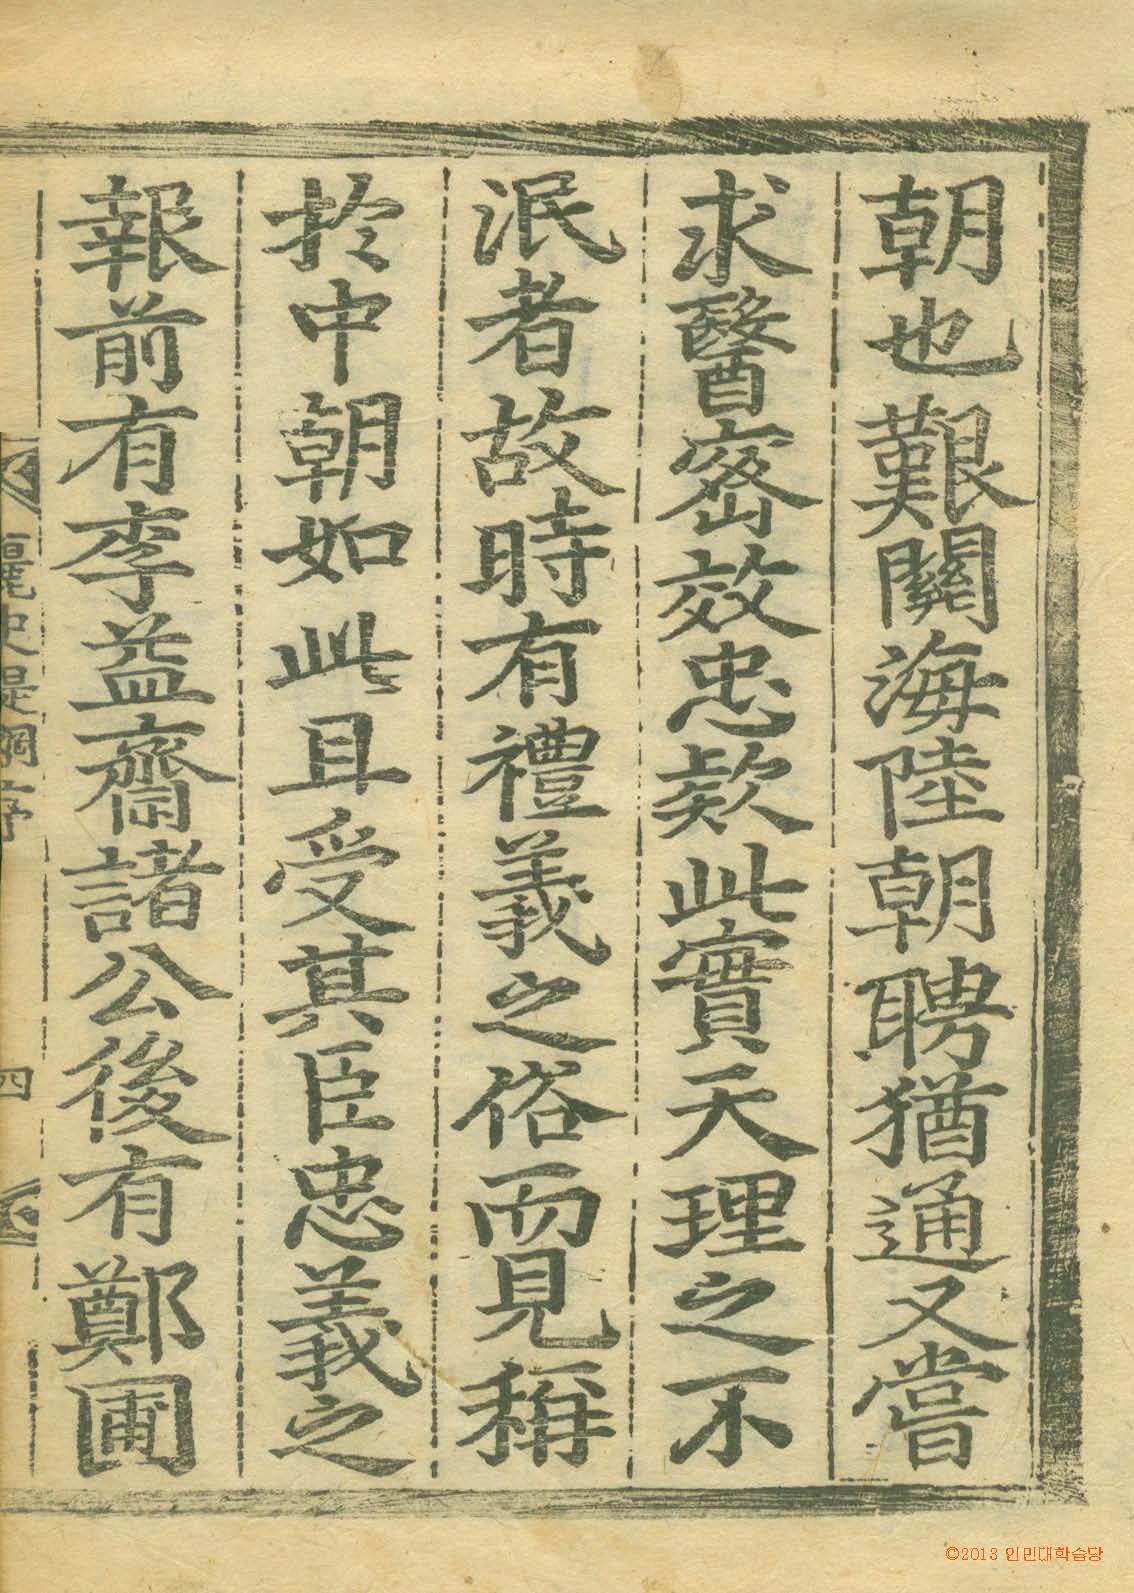 朝也艱關海陸朝聘猶通又嘗
求醫密效忠欵此實天理之不
泯者故時有禮義之俗而見稱
扵中朝如此且受其臣忠義之
報前有李益齋諸公後有鄭圃
麗史提綱序
四
©2013 인민대학습당